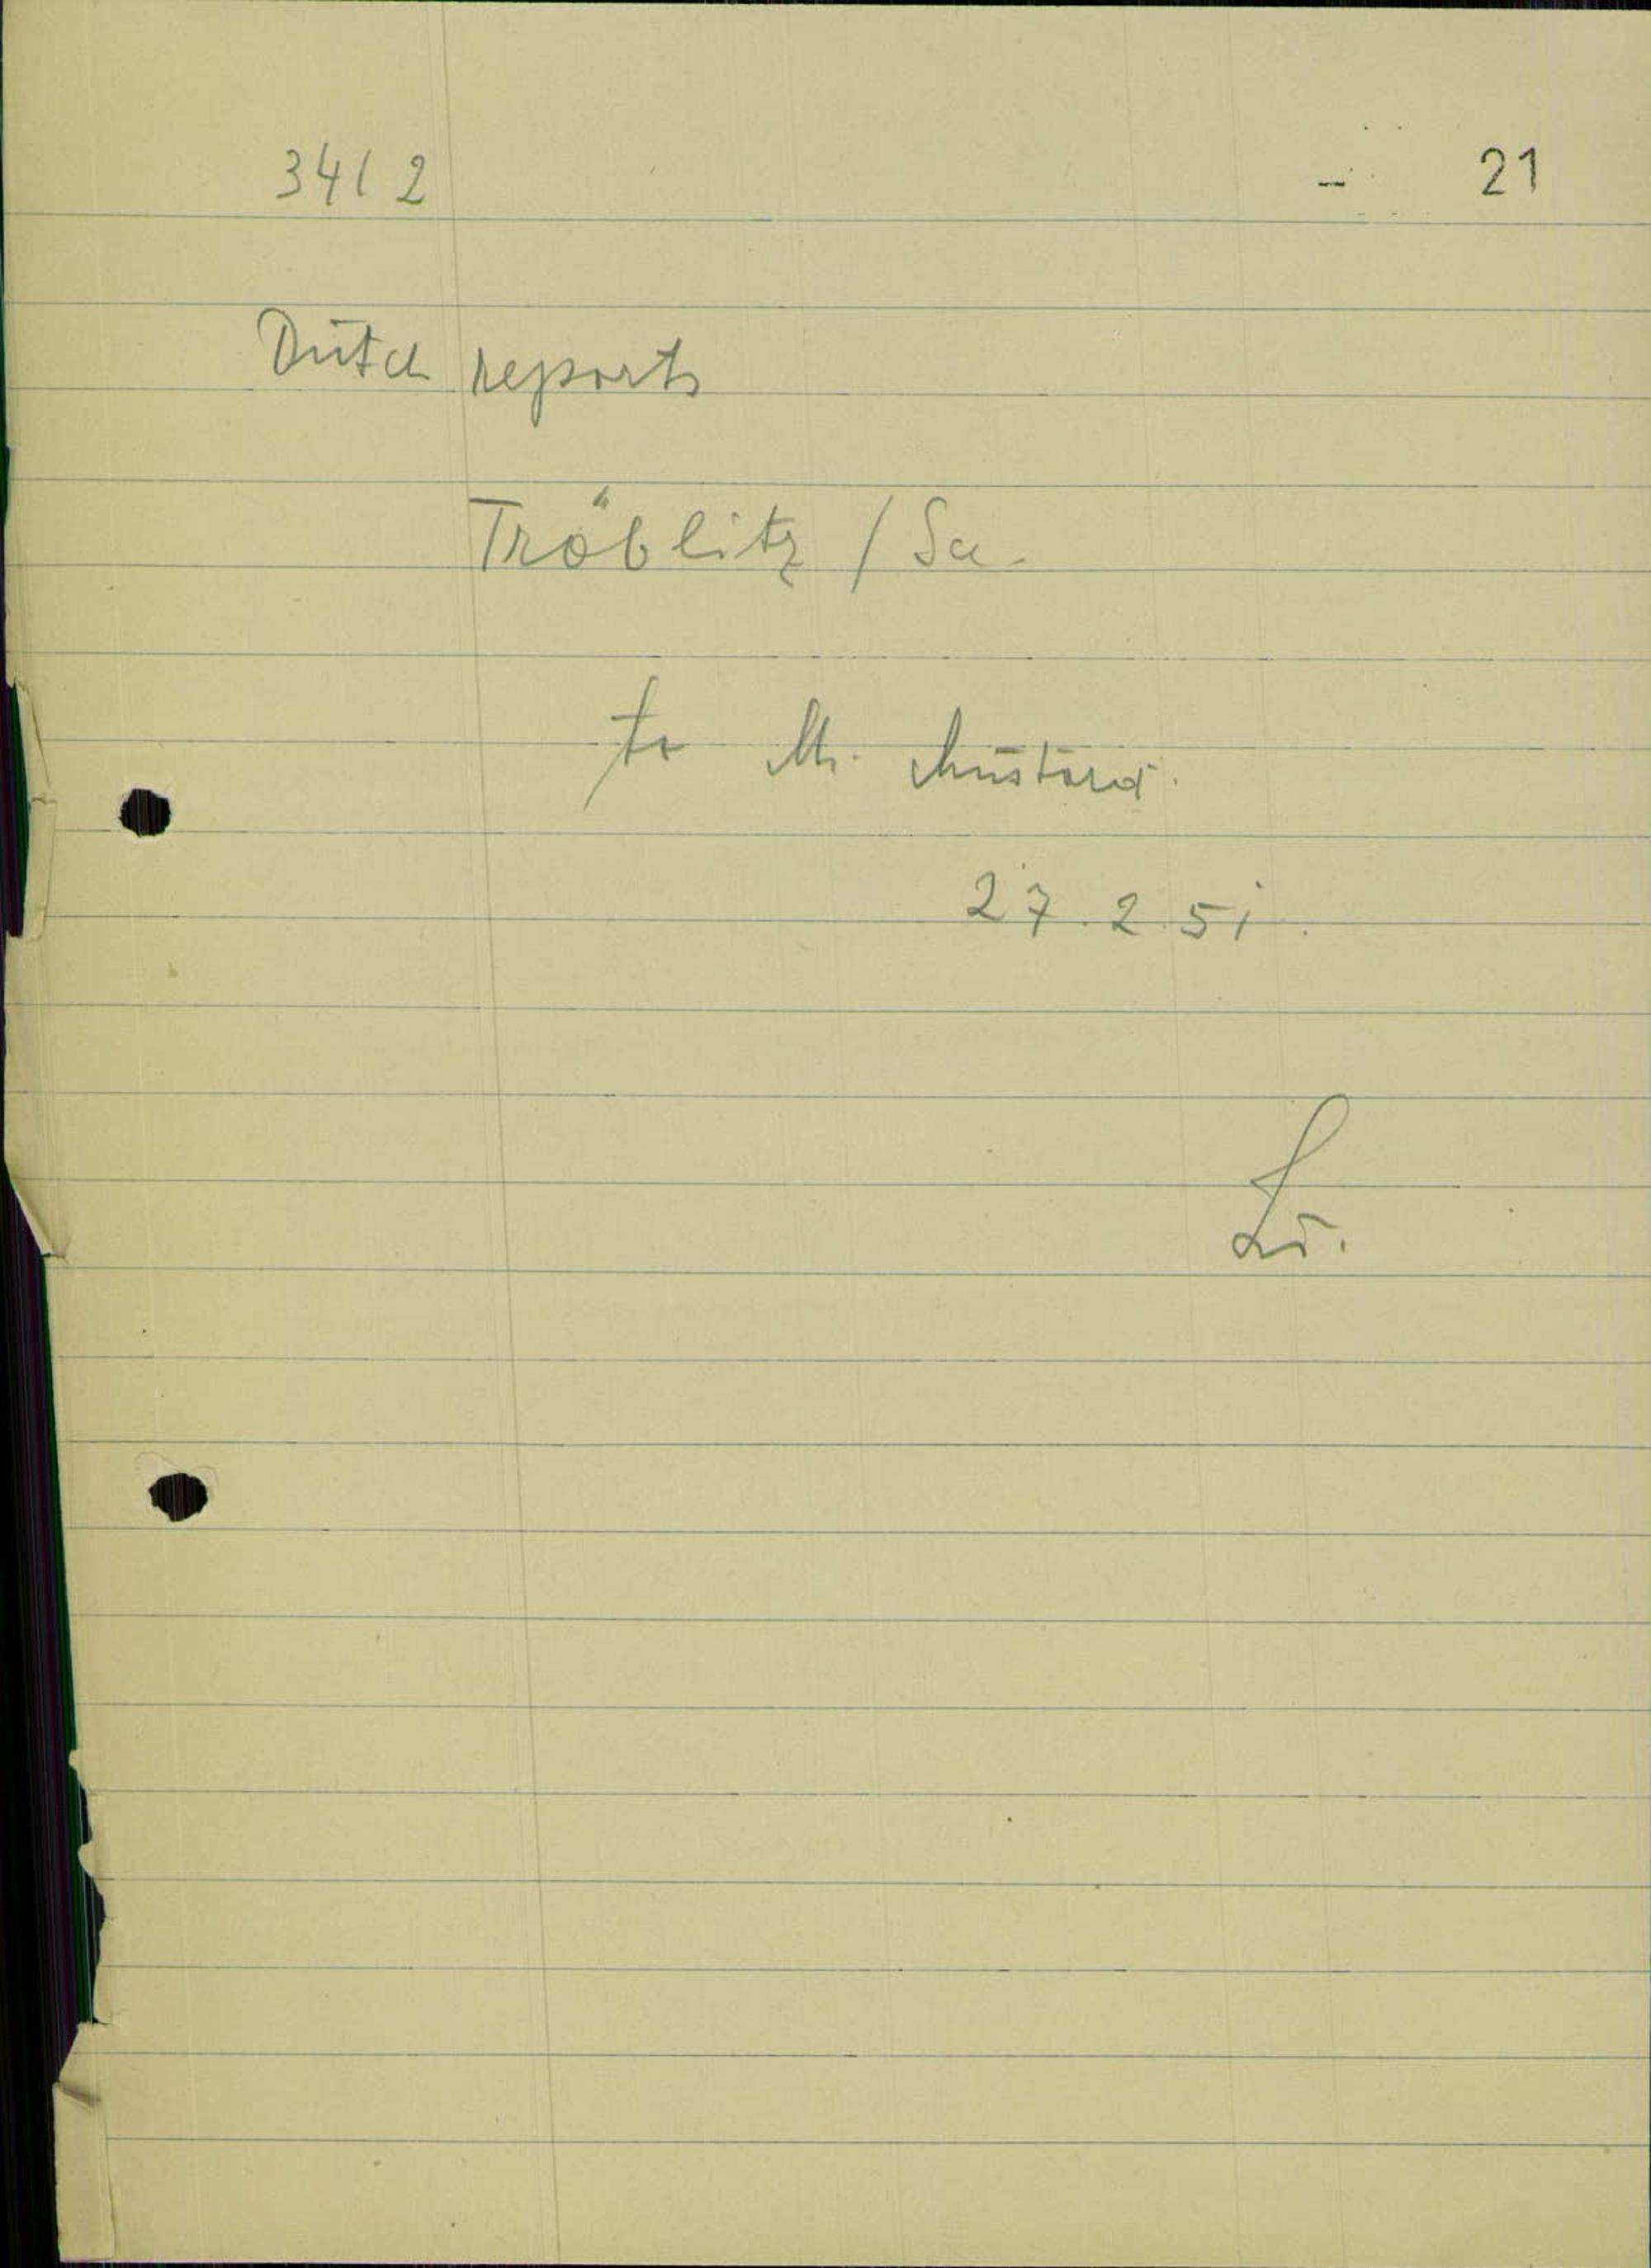 3412 21
Dutch reports
Tröblitz / Sa.
to Mr. Mustard.
27.2.51.